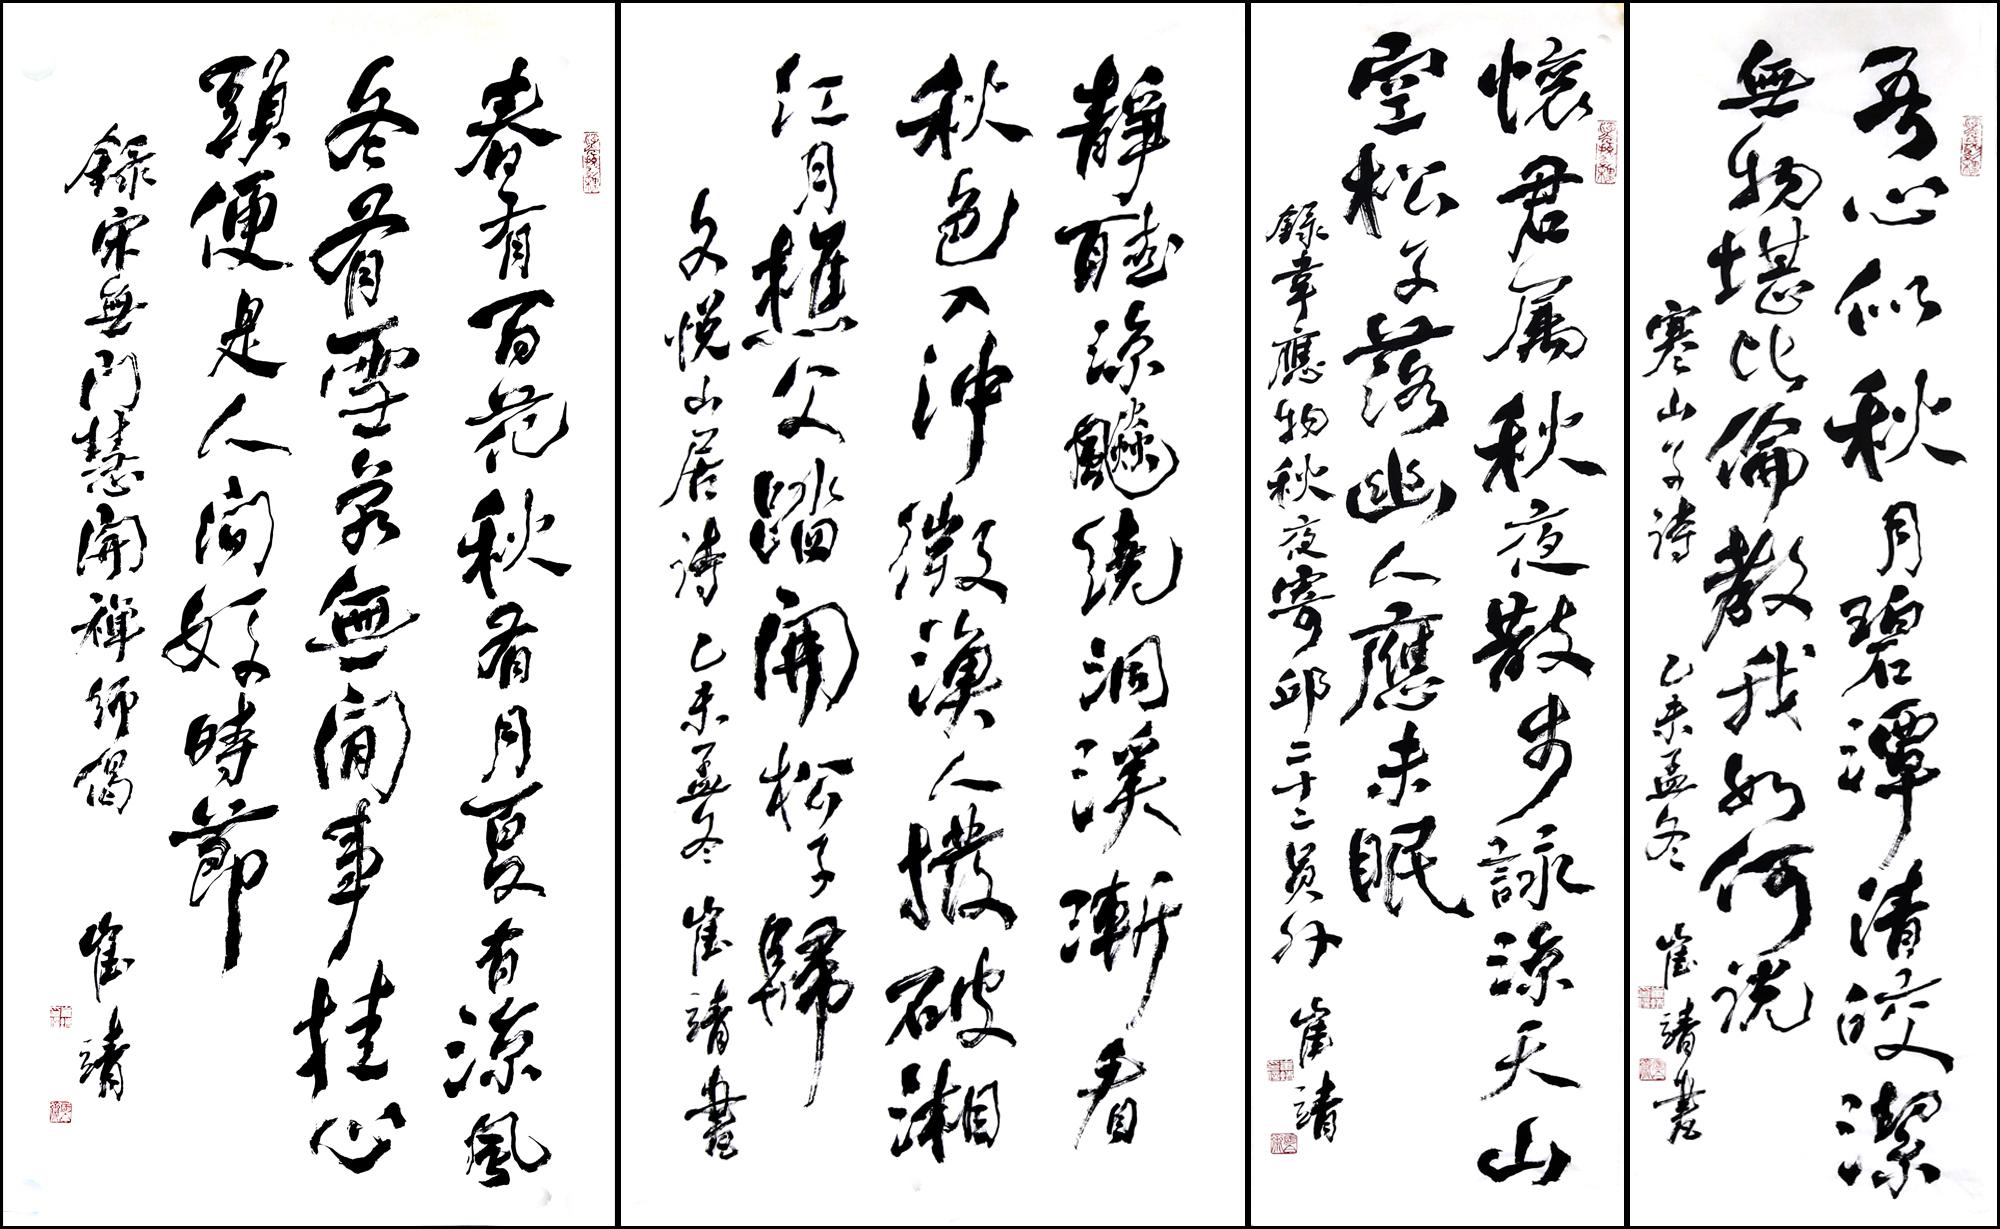 吾心似秋月碧潭清皎潔
無物堪比倫教我如何說
寒山子詩 乙未孟冬 崔靖書
懷君属秋夜散步詠涼天山
空松子落幽人應未眠
錄韋應物秋夜寄邱二十二員外 崔靖
靜聽涼飆繞洞溪漸看
秋色入沖微漁人撥破湘
江月樵父踏開松子歸
文悅山居詩 乙未孟冬 崔靖書
春有百花秋有月夏有涼風
冬有雪若無閒事挂心
頭便是人間好時節
錄宋無門慧開禪師偈 崔靖